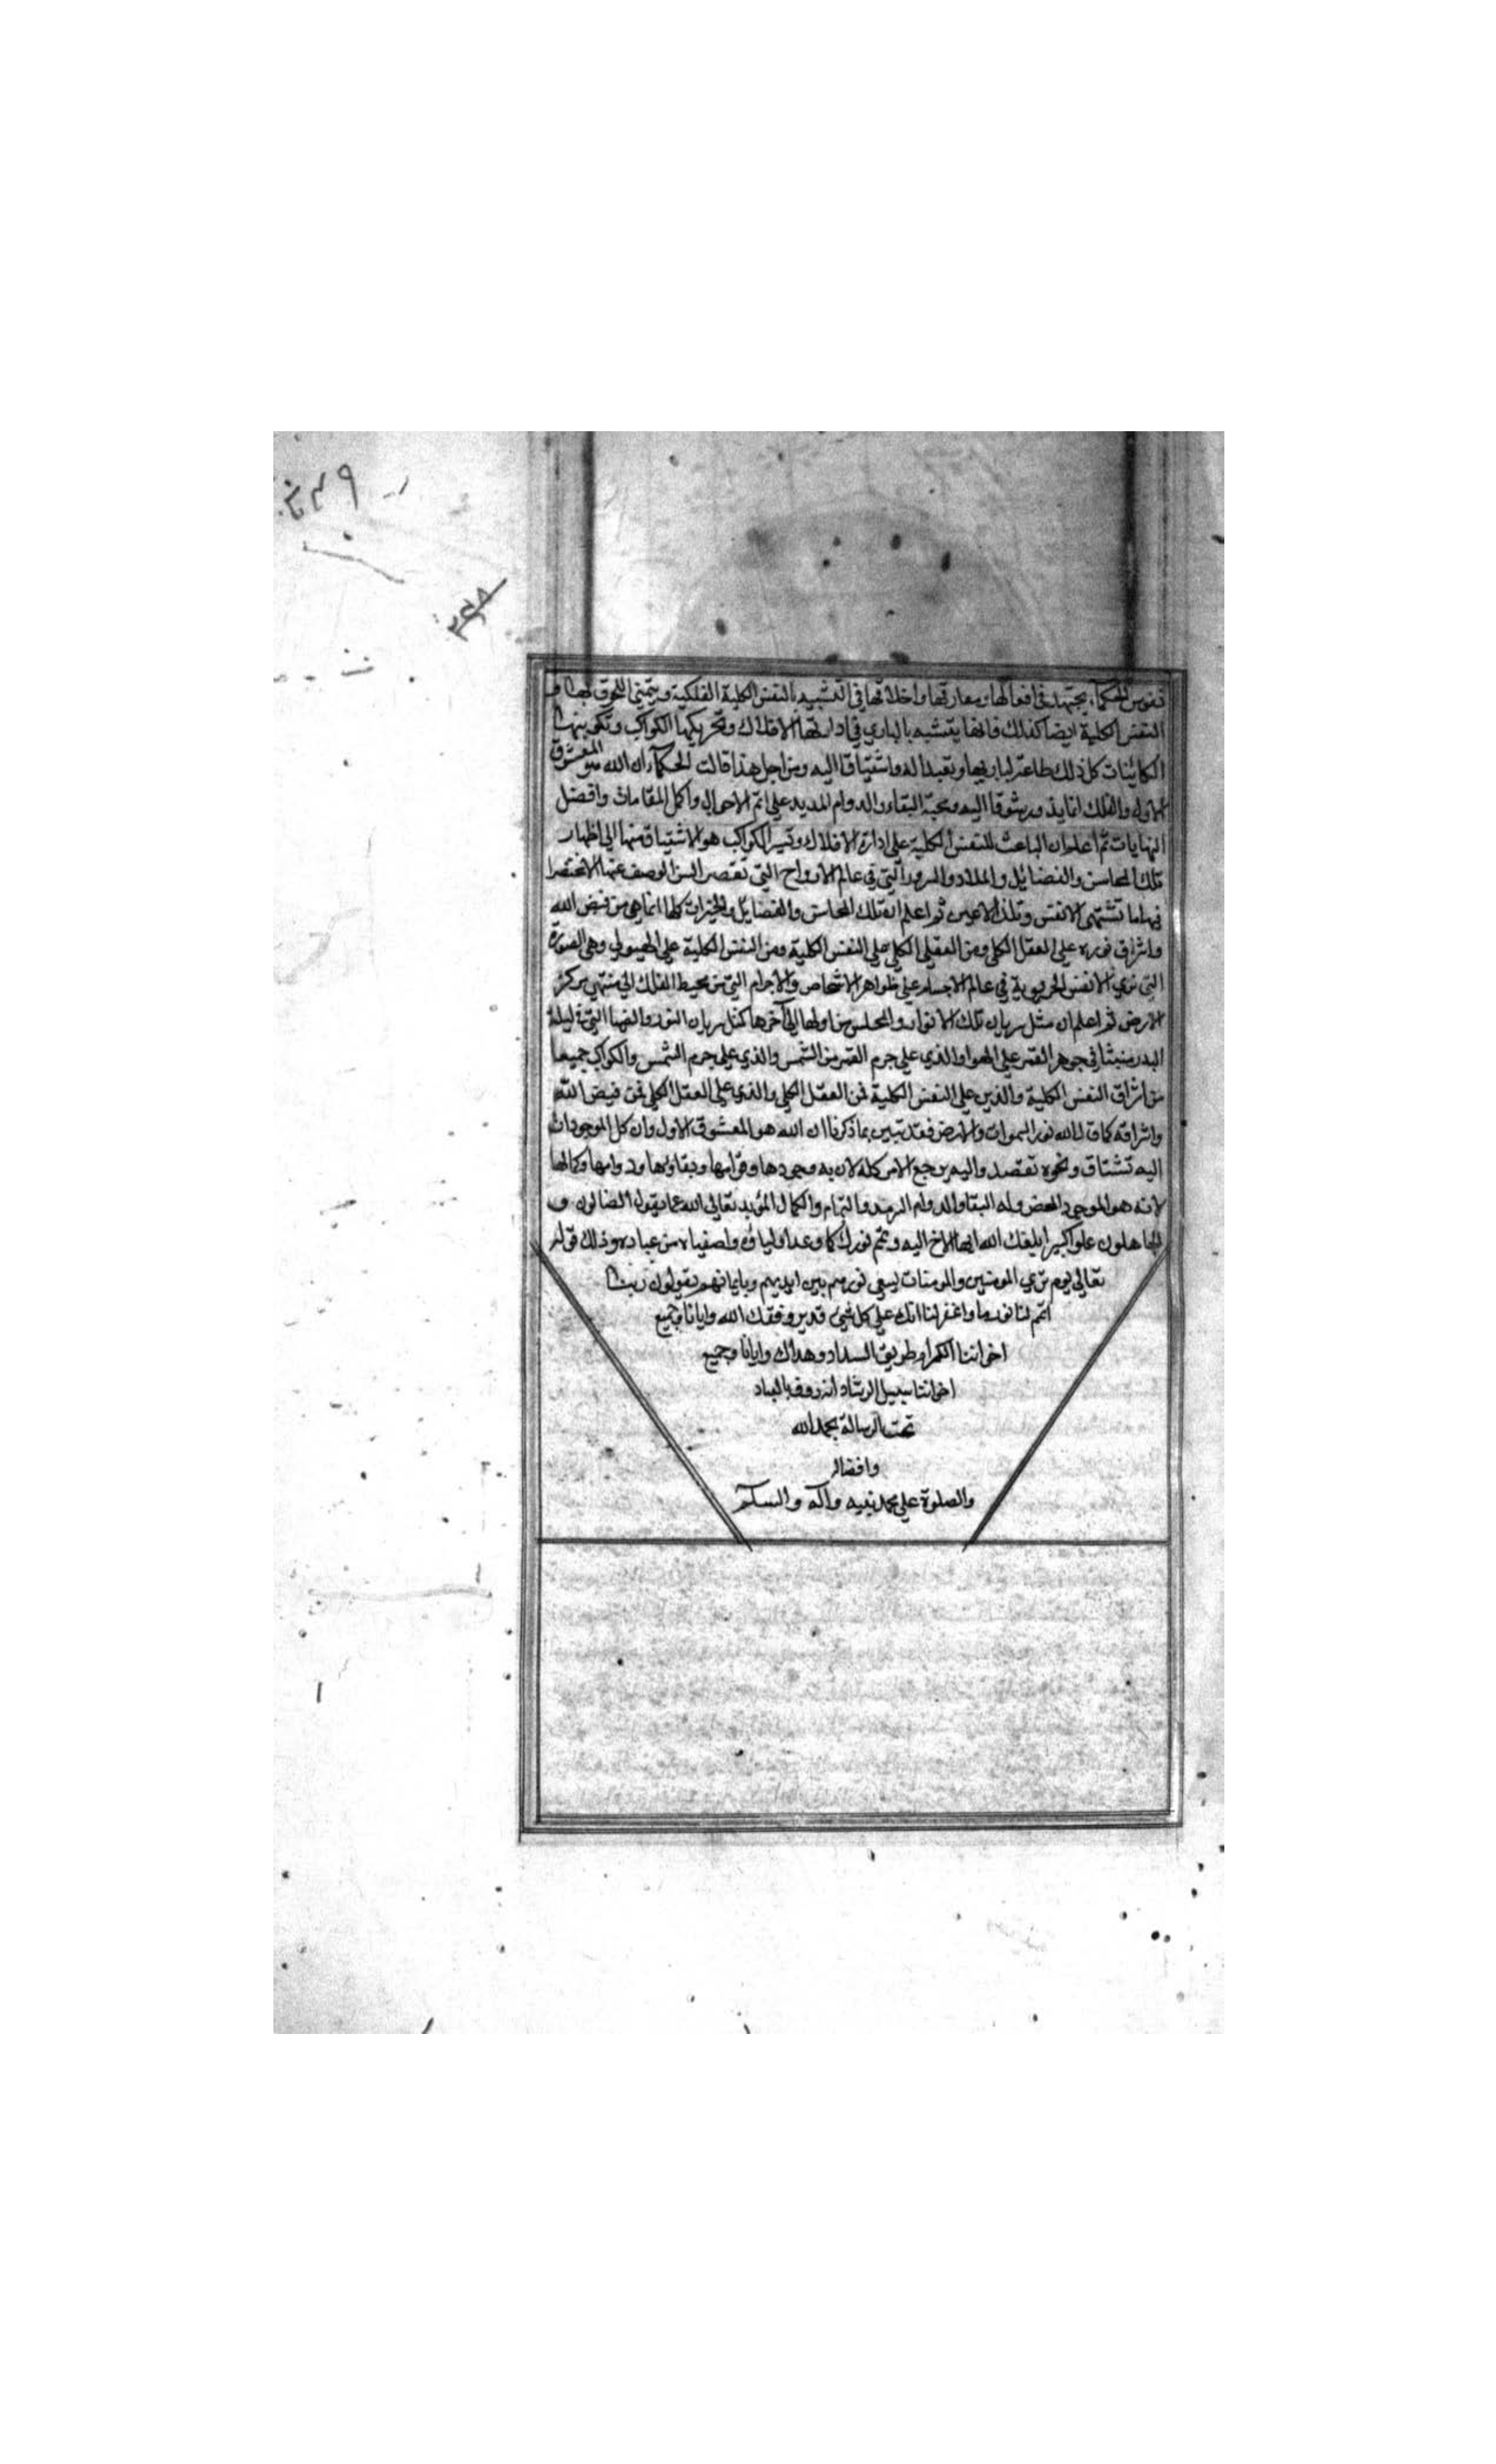 نفوس الحكماء يجتهد في افعالها ومعارفها واخلاقها في التشبيه بالنفس الكلية الفلكية ويتمنى اللحوق بها و
النفس الكلية ايضا كذلك فانها يتشبه بالباري في ادارتها الافلاك وتحريكها الكواكب وتكوينها
الكائنات كل ذلك طاعة لباريها وتعبدا له واشتياقا اليه ومن اجل هذا قالت الحكماء ان الله هو المعشوق
الاول والفلك انما يدور شوقا اليه ومحبة البقاء والدوام المديد على اتم الاحوال واكمل المقامات وافضل
النهايات ثم اعلم ان الباعث للنفس الكلية على ادارة الافلاك وتسير الكواكب هو الاشتياق منها الى اظهار
تلك المحاسن والفضايل والملاد والسرور التي في عالم الارواح التي تقصر السن الوصف عنها الا مختصرا
فيها ما تشتهي الانفس وتلذ الاعين ثم اعلم ان تلك المحاسن والفضايل والخيرات كلها انما هي من فيض الله
واشراق نوره على العقل الكلي ومن العقل الكلي على النفس الكلية ومن النفس الكلية على الهيولي وهي الصورة
التي تري الانفس الجزوية في عالم الاجساد على ظواهر الاشخاص والاجرام التي من محيط الفلك الى منتهي مركز
الارض ثم اعلم ان مثل سريان تلك الانوار والمحاسن من اولها الى آخرها كمثل سريان النور والضيا التي في ليلة
البدر منبثا في جوهر القمر على الهوا والذي على جرم القمر من الشمس والذي على جرم الشمس والكواكب جميعا
من اشراق النفس الكلية والذين على النفس الكلية فمن العقل الكلي والذي على العقل الكلي فمن فيض الله
واشراقه كما قال الله نور السموات والارض فقد تبين بما ذكرنا ان الله هو المعشوق الاول وان كل الموجودات
اليه تشتاق ونحوه تقصد واليه يرجع الامر كله لان به وجودها وقوامها وبقاؤها ودوامها وكمالها
لانه هو الموجود المحض وله البقا والدوام السرمد والتمام والكمال المؤبد تعالى الله عما يقول الضالون و
الجاهلون علوا كبيرا ابلغك الله ايها الاخ اليه وتمم نورك كما وعد اولياؤه واصفياه من عباده وذلك قوله
تعالى يوم تري المومنين والمومنات يسعي نورهم بين ايديهم وبايمانهم يقولون ربنا
اتمم لنا نورنا واغفر لنا انك على كل شئ قدير وفقك الله وايانا وجميع
اخواننا الكرام طريق السداد وهداك وايانا وجميع
اخواننا سبيل الرشاد انه روف بالعباد
تمت الرسالة بحمد الله
وافضاله
والصلوة على محمد نبيه وآله والسلام